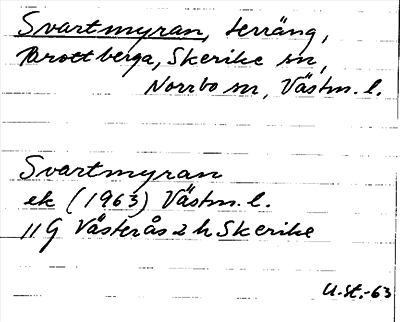 Svartmyran, terräng,
Brottberga, Skerike sn,
Norrbo sn, Västm. l.
Svartmyran
ek (1963) Västm. l.
11G Västerås 2 h Skerike
U.St.-63